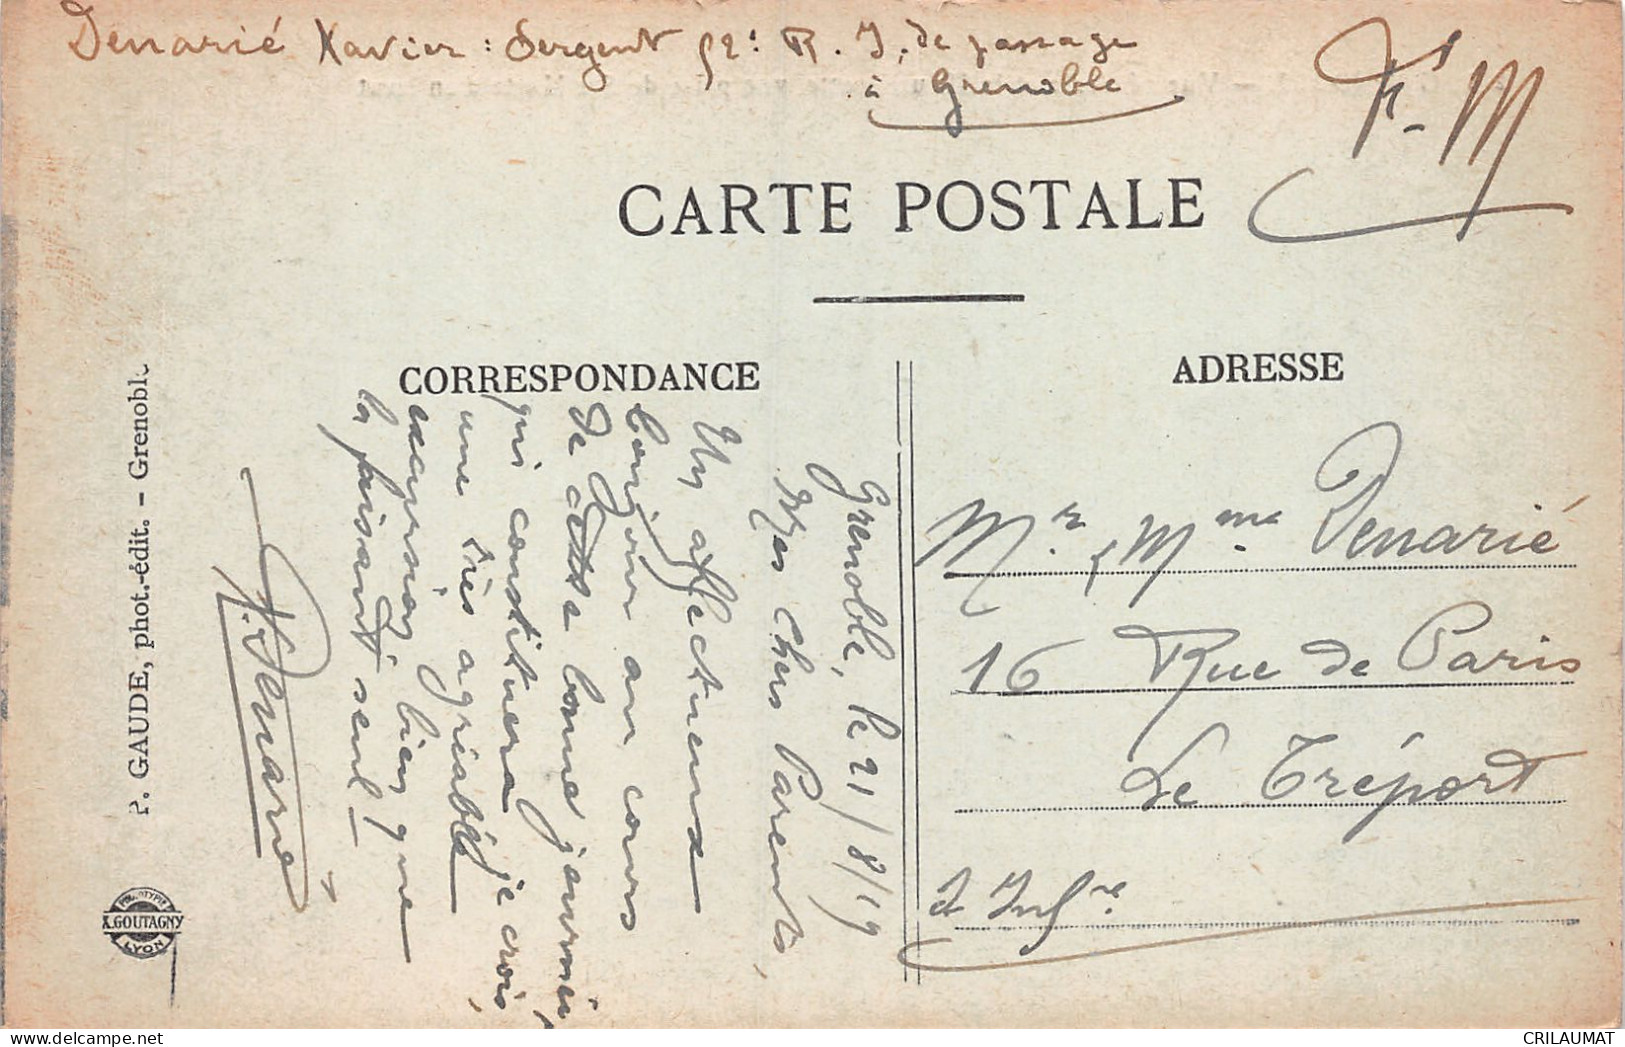 Denarié Xavier : Sergent 52e R. I. de passage
à Grenoble
F. M
CARTE POSTALE
CORRESPONDANCE
ADRESSE
Grenoble, le 21/8/19
Mes Chers Parents,
Un affectueux
bonjour au cours
de cette bonne journée,
qui constituera je crois,
une très agréable
excursion, bien que
la faisant seul !
X. Denarié
Mr & Mme Denarié
16 Rue de Paris
Le Tréport
S Infre
P. GAUDE, phot.-édit. - Grenoble
PHOTOTYPIE
X. GOUTAGNY
LYON
CRILAUMAT